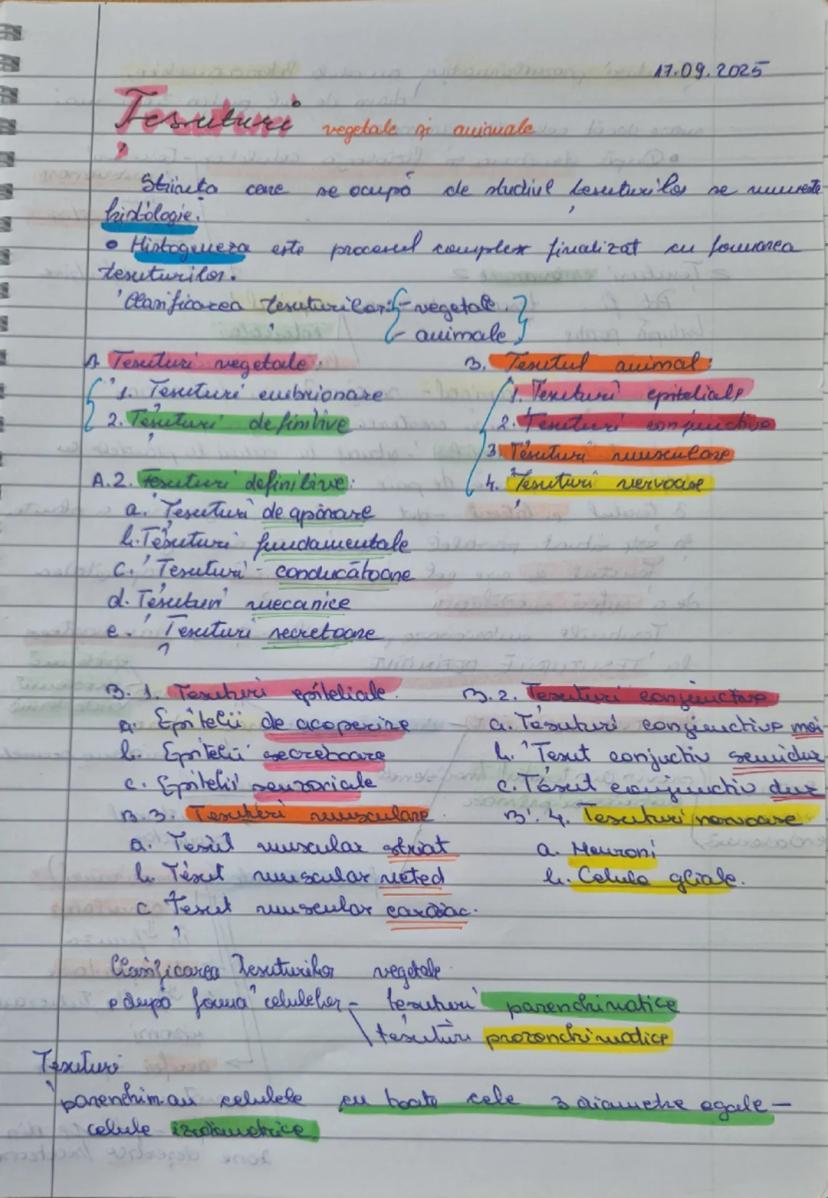 17.09.2025
Țesuturi vegetale și animale
Știința care se ocupă de studiul țesuturilor se numește
histologie.
• Histogeneza este procesul complex finalizat cu formarea
țesuturilor.
Clasificarea țesuturilor: - vegetale
- animale
A. Țesuturi vegetale:
1. Țesuturi embrionare
2. Țesuturi definitive
B. Țesutul animal:
1. Țesuturi epiteliale
2. Țesuturi conjunctive
3. Țesuturi musculare
4. Țesuturi nervoase
A.2. Țesuturi definitive:
a. Țesuturi de apărare
b. Țesuturi fundamentale
c. Țesuturi conducătoare
d. Țesuturi mecanice
e. Țesuturi secretoare
B. 1. Țesuturi epiteliale
a. Epitelii de acoperire
b. Epitelii secretoare
c. Epitelii senzoriale
B.2. Țesuturi conjunctive
a. Țesuturi conjunctive moi
b. Țesut conjuctiv semidur
c. Țesut conjunctiv dur
B.3. Țesuturi musculare
a. Țesut muscular striat
b. Țesut muscular neted
c. Țesut muscular cardiac.
B. 4. Țesuturi nervoase
a. Neuroni
b. Celule gliale.
Clasificarea Țesuturilor vegetale
• după forma celulelor - țesuturi parenchimatice
\ țesuturi prozenchimatice
Țesuturi
parenchim. au celulele cu toate cele 3 diametre egale -
celule izodiametrice.